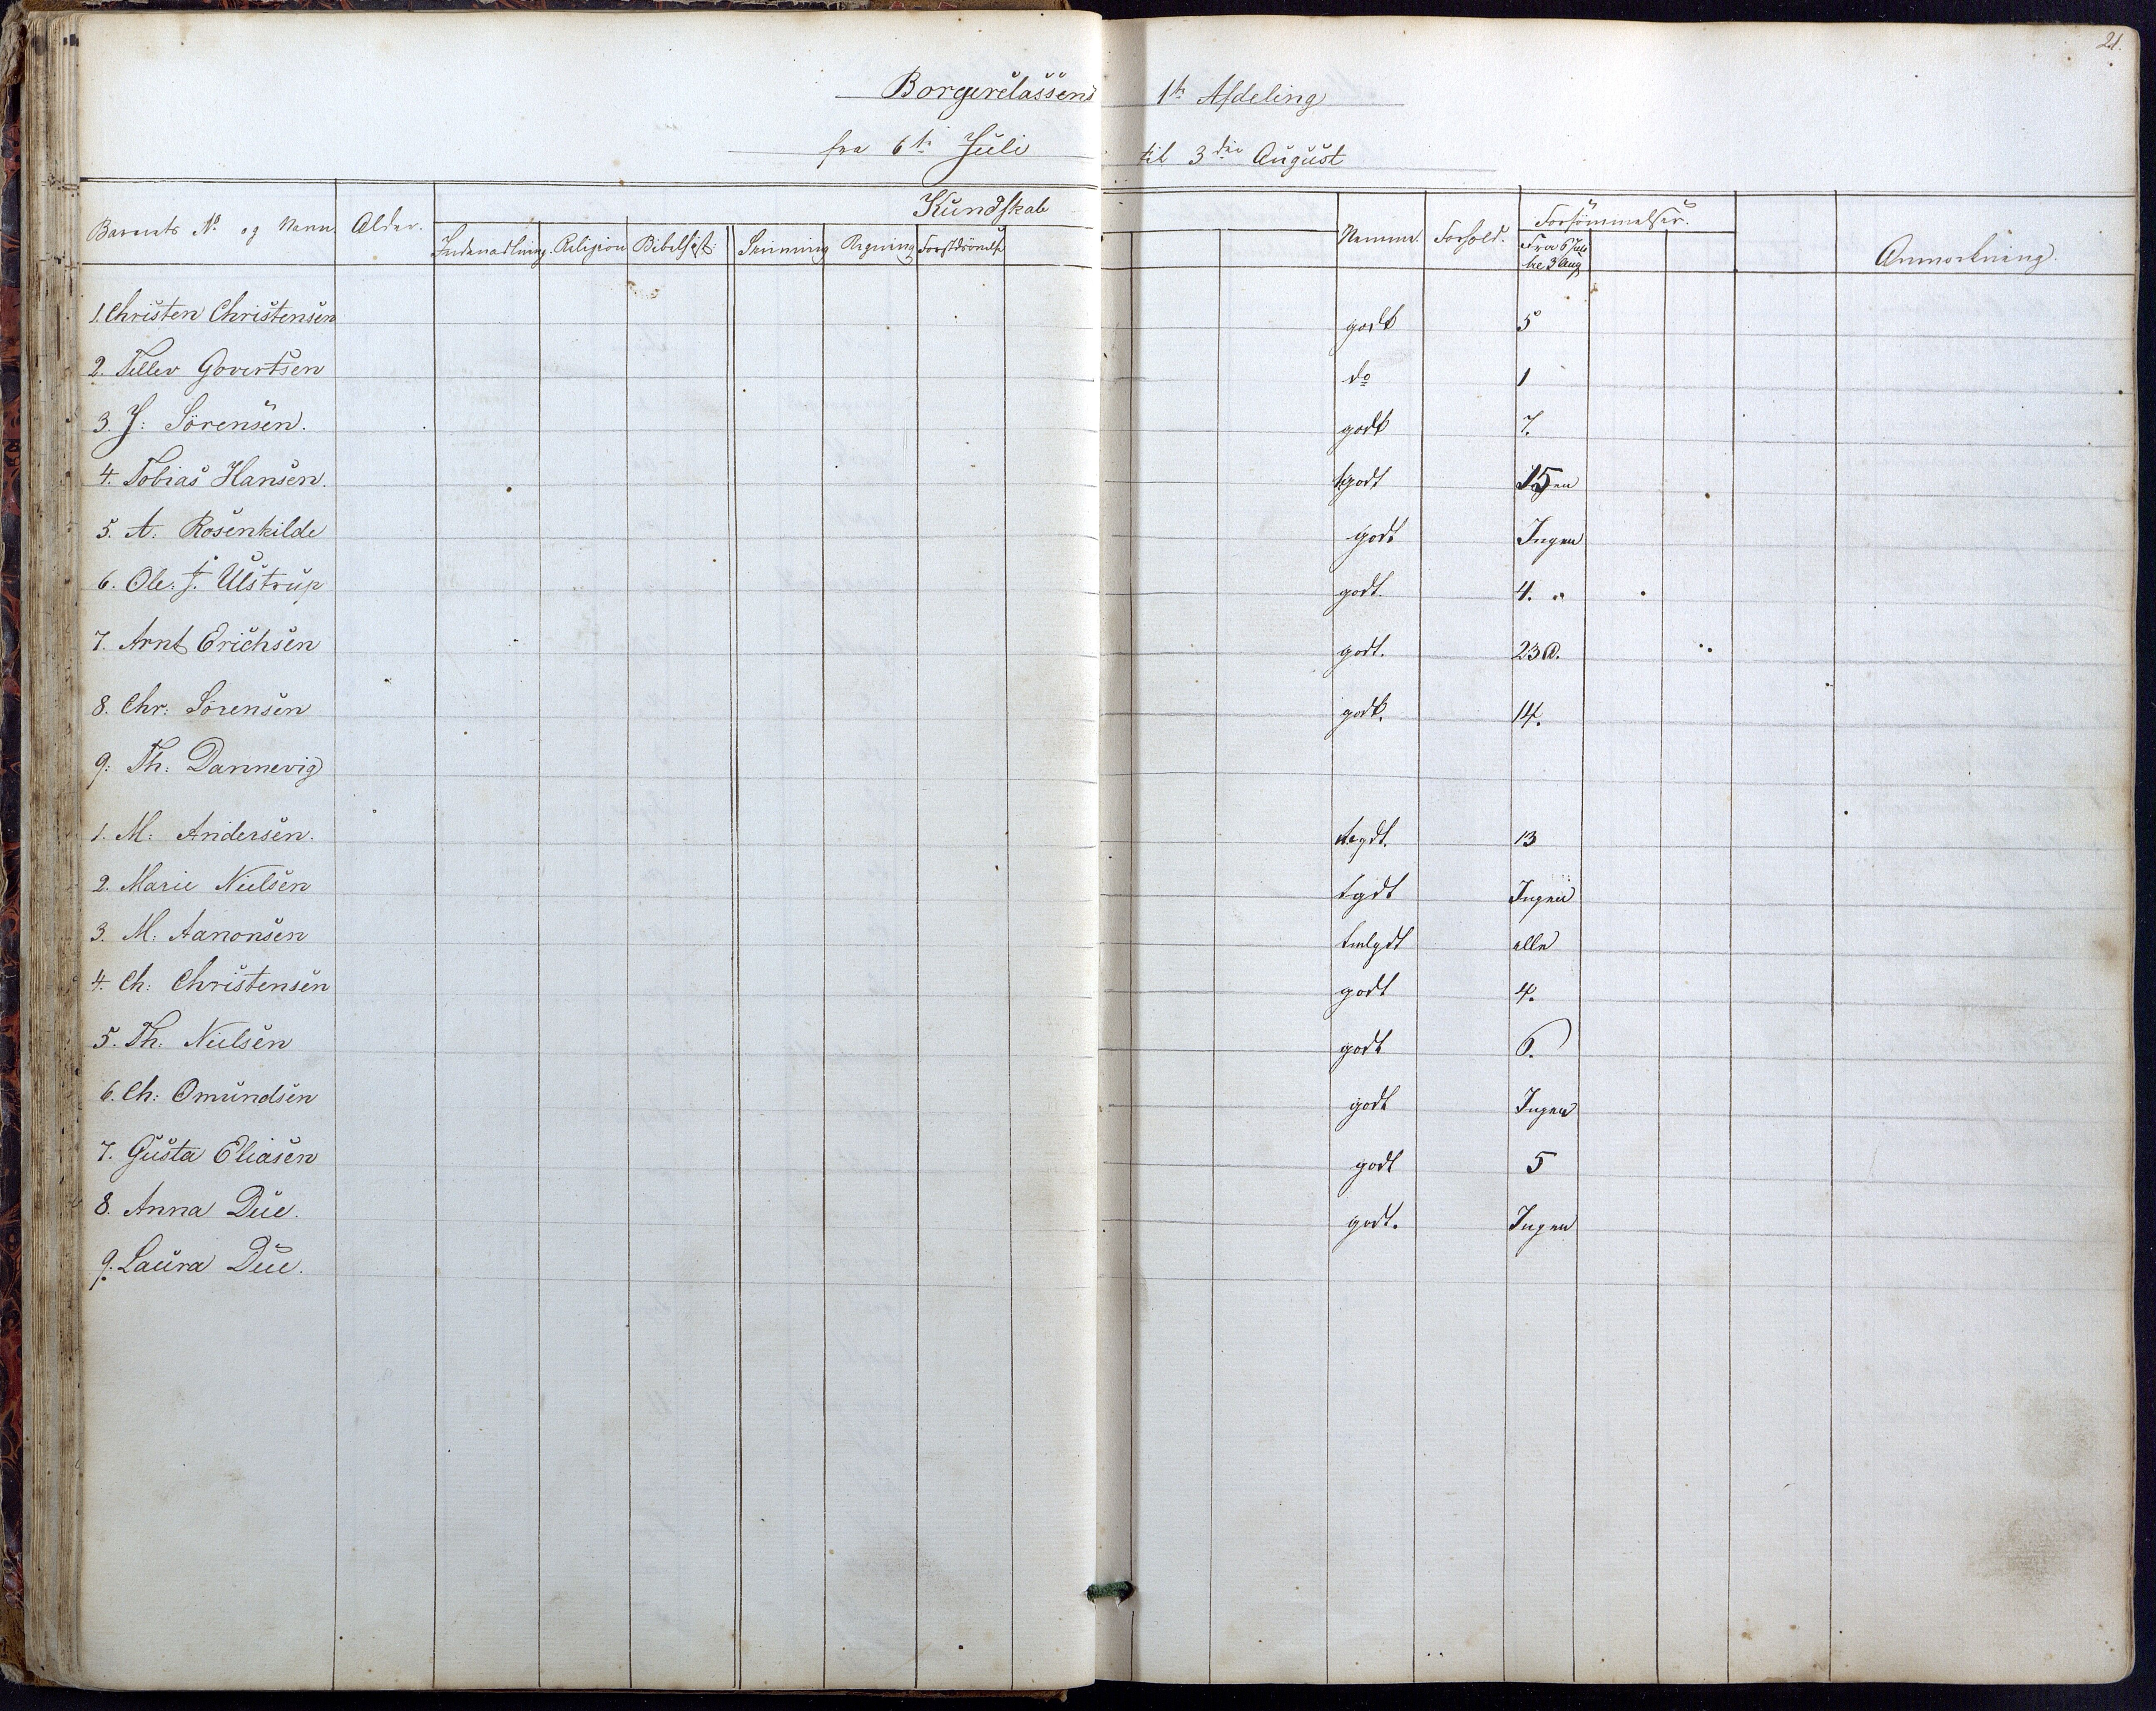 21.
Borgerclassens 1te Afdeling
fra 6te Juli til 3die August
Kundskab
Barnets No og Navn. Alder. Indenadlæsning. Religion Bibelhist: Skrivning Regning Forstdsövelse Nemme. Forhold. Forsömmelser. Anmærkning.
Fra 6 Juli
til 3 Aug
1. Christen Christensen godt 5
2. Tellev Govertsen do 1
3. J: Sörensen. godt 7.
4. Tobias Hansen. godt 15
5. A. Rosenkilde godt Ingen
6. Ole. J. Ulstrup godt. 4.
7. Arnt Erichsen godt. 23
8. Chr: Sörensen godt. 14.
9: Th: Dannevig
1. M: Andersen. tgdt. 13
2. Marie Nielsen tgdt Ingen
3. M: Aanonsen tmlgdt alle
4. Ch: Christensen godt 4.
5. Th: Nielsen godt 6.
6. Ch: Omundsen godt Ingen
7. Gusta Eliasen godt 5
8. Anna Due. godt. Ingen
9. Laura Due.